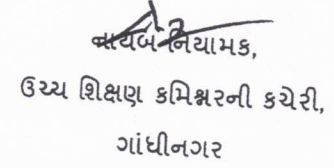 નાયબ નિયામક,
ઉચ્ચ શિક્ષણ કમિશ્નરની કચેરી,
ગાંધીનગર